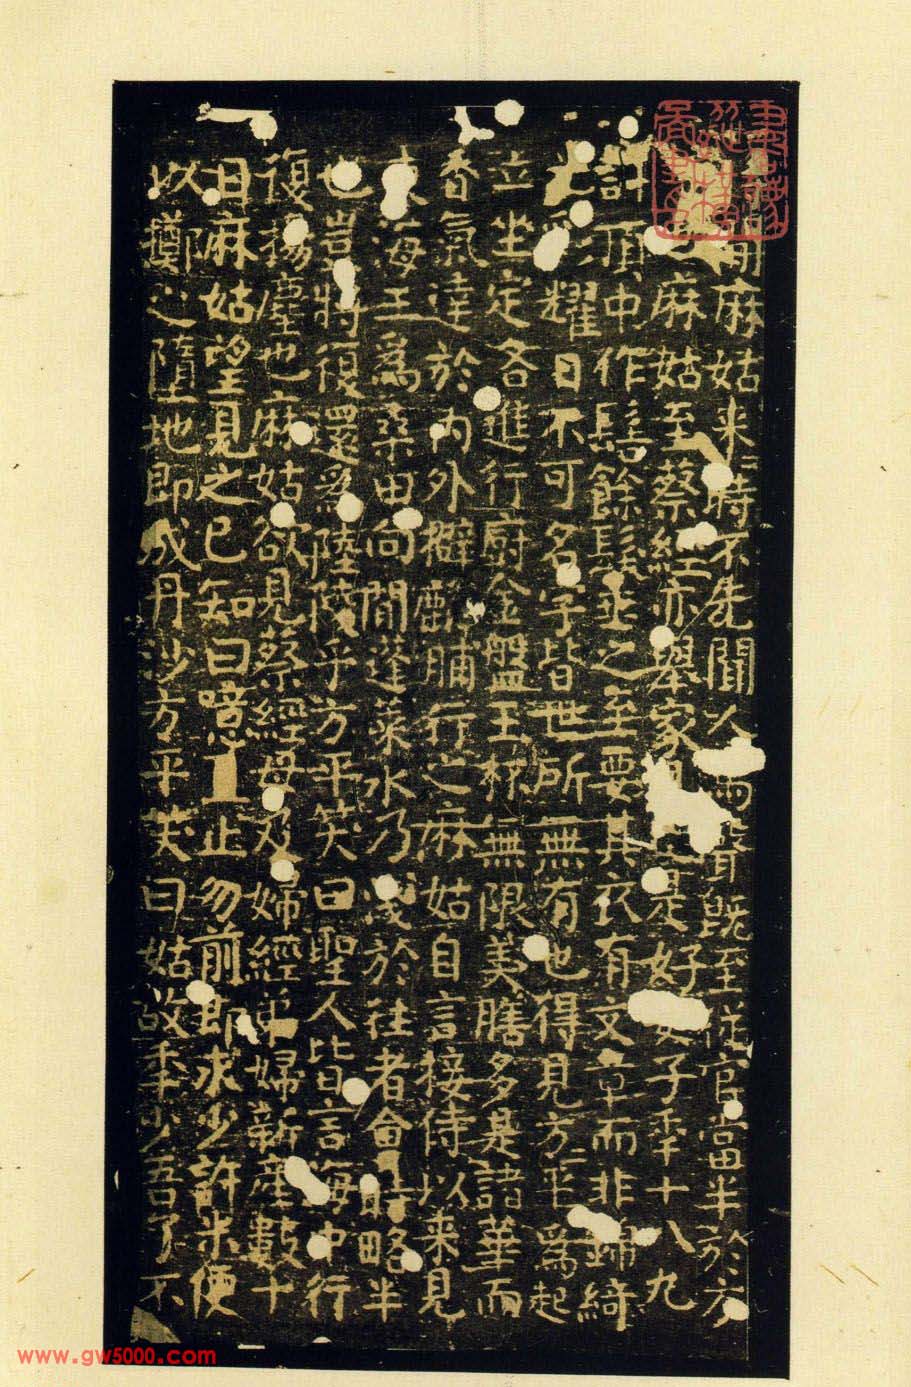 間麻姑来〻時不先聞人馬聲既至從官當半於方
麻姑至蔡經亦舉家見之是好女子年十八九
許頂中作髻餘髮垂之至要其衣有文章而非錦綺
光彩耀日不可名字皆世所無有也得見方平為起
立坐定各進行廚金盤玉杯無限美膳多是諸華而
香氣達於內外擗麟脯行之麻姑自言接侍以来見
東海三為桑田向間蓬萊水乃淺於往者會時略半
也豈將復還為陸陵乎方平笑曰聖人皆言海中行
復揚塵也麻姑欲見蔡經母及婦經弟婦新產數十
日麻姑望見之已知曰噫且止勿前即求少許米便
以擲之墮地即成丹沙方平笑曰姑故年少吾了不
www.gw5000.com